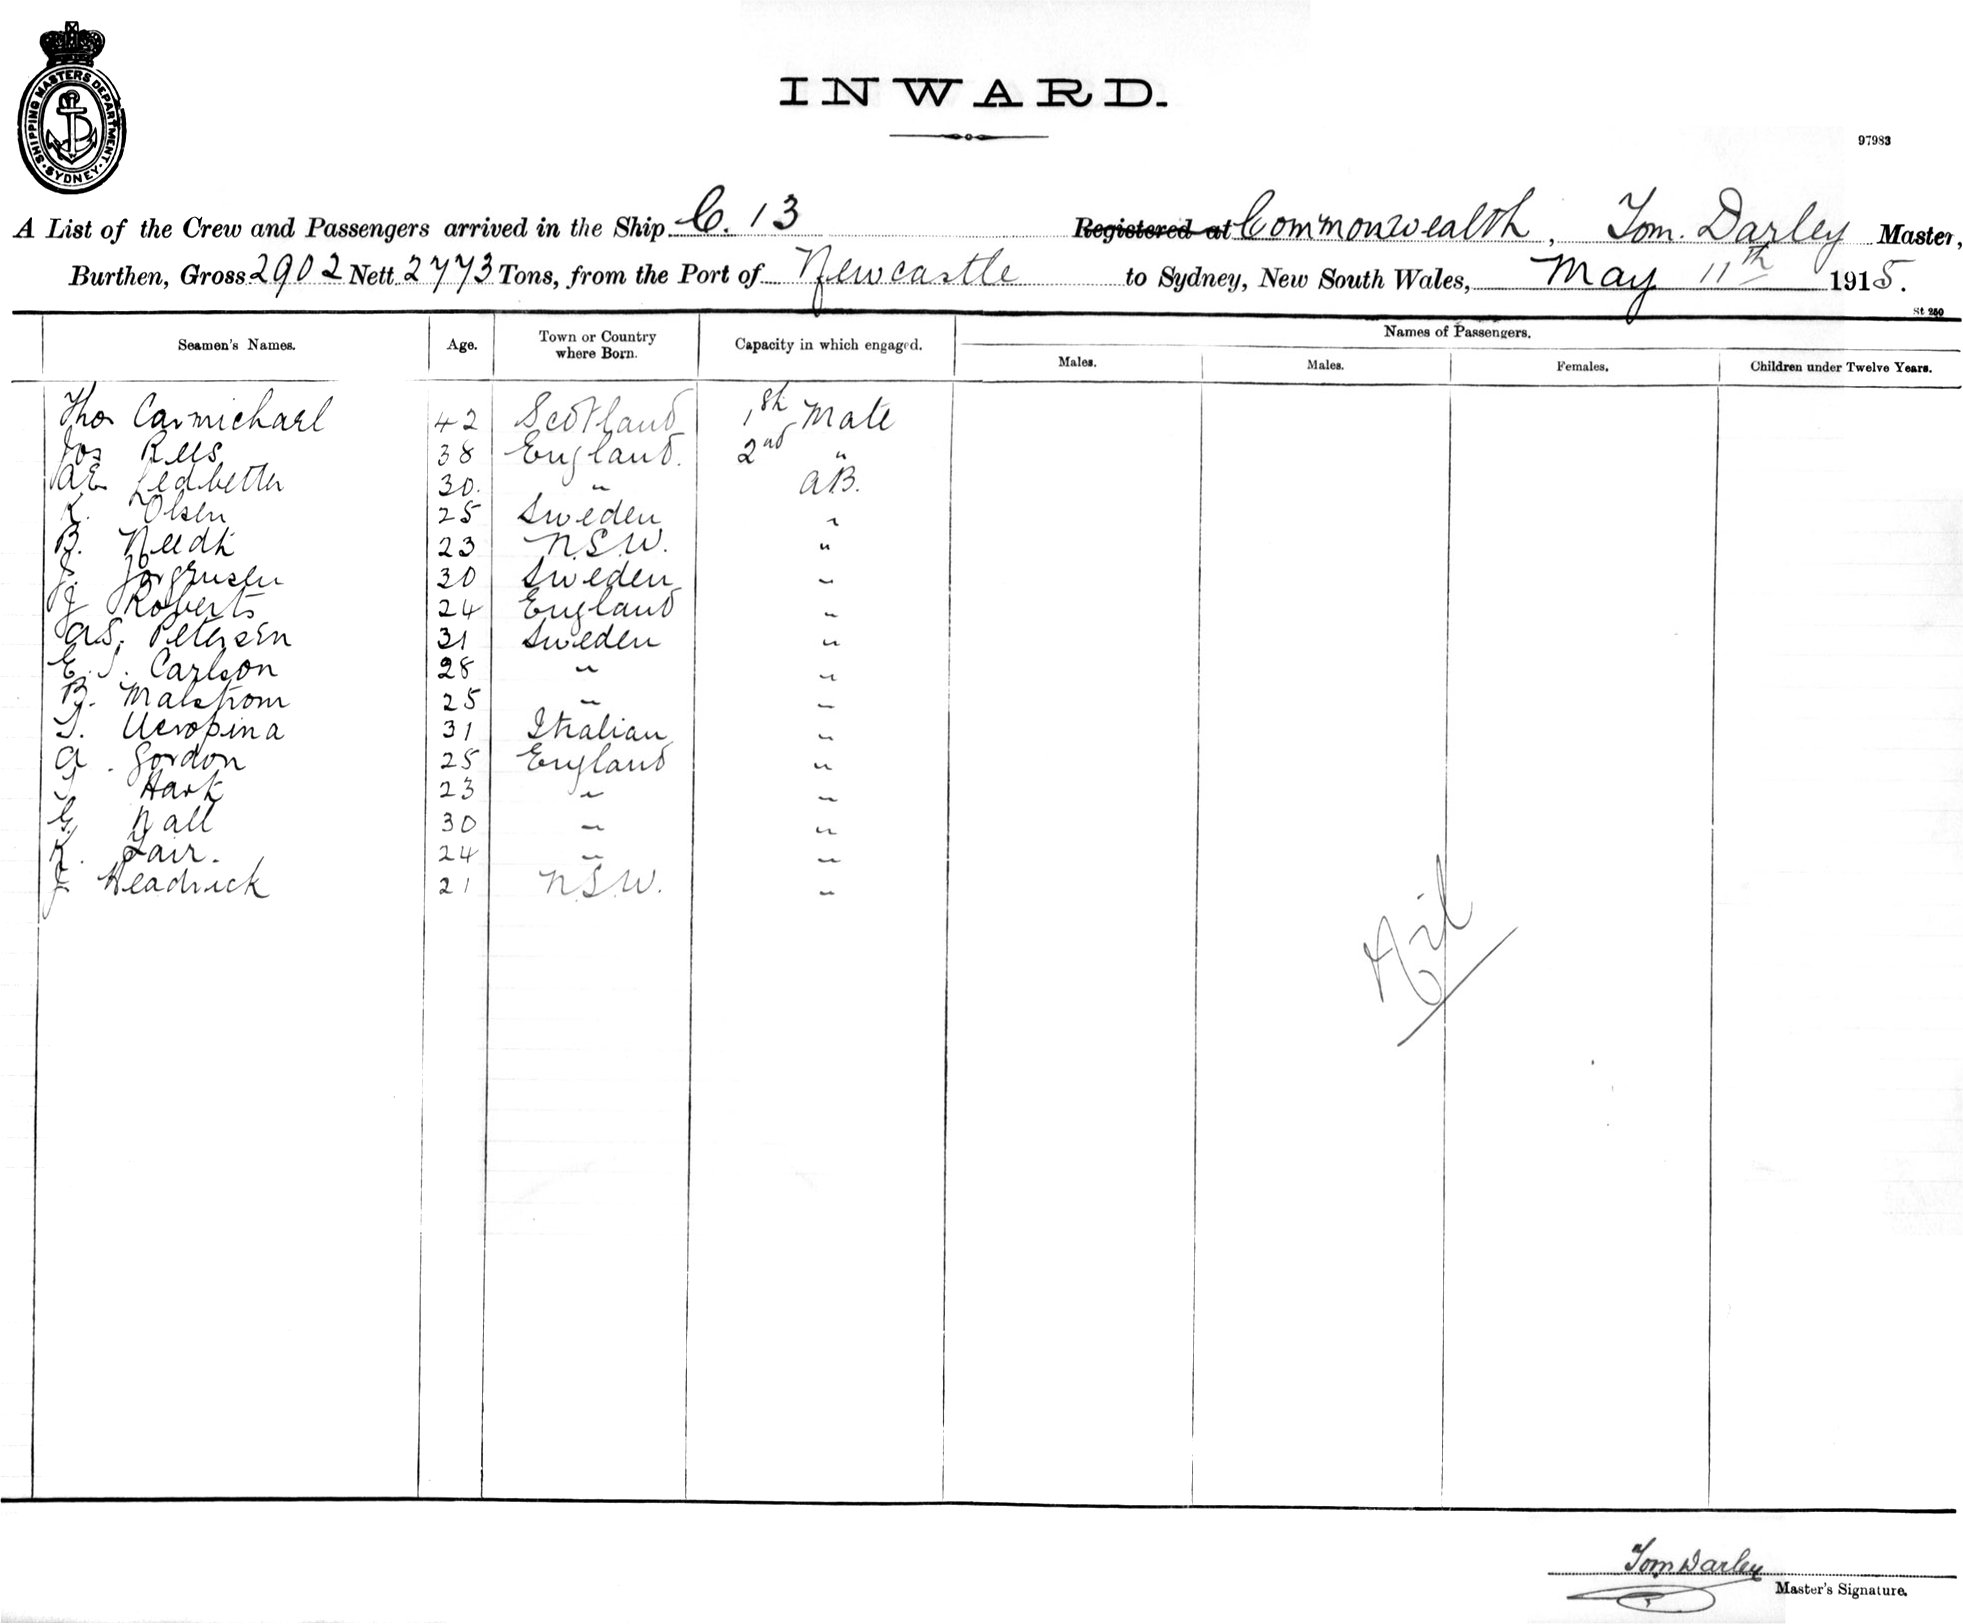 SHIPPING MASTERS DEPARTMENT. SYDNEY.
INWARD.
97983
A List of the Crew and Passengers arrived in the Ship C. 13 Registered at Commonwealth, Tom. Darley Master,
Burthen, Gross 2902 Nett 2773 Tons, from the Port of Newcastle to Sydney, New South Wales, May 11th 1915.
St 250
Seamen's Names. Age. Town or Country where Born. Capacity in which engaged. Names of Passengers.
Males. Males. Females. Children under Twelve Years.
Thos Carmichael 42 Scotland 1st Mate
Jos Rees 38 England. 2nd "
AE Ledbetter 30. " AB.
K. Olsen 25 Sweden "
B. 23 N.S.W. "
J. Jorgensen 30 Sweden "
J Roberts 24 England "
AS. Petersen 31 Sweden "
E. J. Carlson 28 " "
B. Malstrom 25 " "
31 Italian "
A. Gordon 25 England "
Hart 23 " "
G. 30 " "
K. 24 " "
J Headrick 21 N.S.W. "
Nil
Tom Darley
Master's Signature.